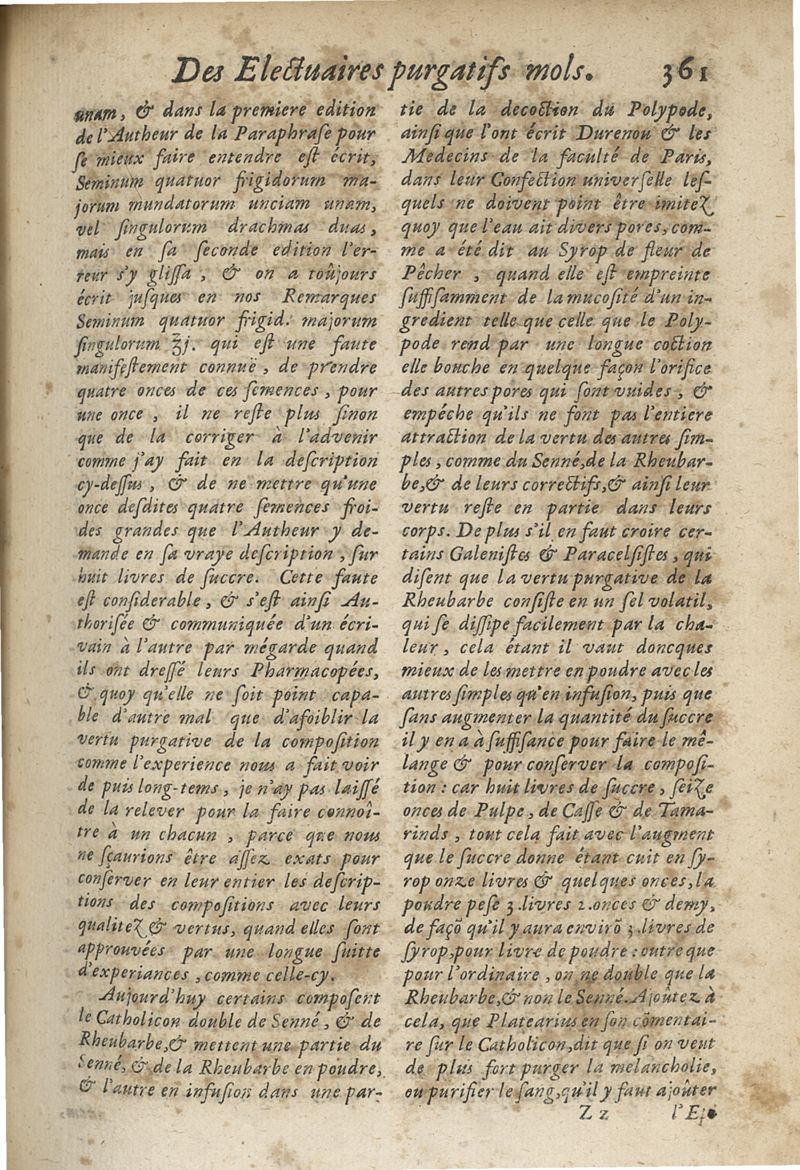 Des Electuaires purgatifs mols. 361
unam, & dans la premiere edition
de l'Autheur de la Paraphraſe pour
ſe mieux faire entendre eſt écrit,
Seminum quatuor frigidorum ma-
jorum mundatorum unciam unam,
vel ſingulorum drachmas duas,
mais en ſa ſeconde edition l'er-
reur s'y gliſſa, & on a toûjours
écrit juſques en nos Remarques
Seminum quatuor frigid. majorum
ſingulorum ʒ̄j. qui eſt une faute
manifeſtement connuë, de prendre
quatre onces de ces ſemences, pour
une once, il ne reſte plus ſinon
que de la corriger à l'advenir
comme j'ay fait en la deſcription
cy-deſſus, & de ne mettre qu'une
once deſdites quatre ſemences froi-
des grandes que l'Autheur y de-
mande en ſa vraye deſcription, ſur
huit livres de ſuccre. Cette faute
eſt conſiderable, & s'eſt ainſi Au-
thoriſée & communiquée d'un écri-
vain à l'autre par mégarde quand
ils ont dreſſé leurs Pharmacopées,
& quoy qu'elle ne ſoit point capa-
ble d'autre mal que d'afoiblir la
vertu purgative de la compoſition
comme l'experience nous a fait voir
de puis long-tems, je n'ay pas laiſſé
de la relever pour la faire connoî-
tre à un chacun, parce que nous
ne ſçaurions être aſſez exats pour
conſerver en leur entier les deſcrip-
tions des compoſitions avec leurs
qualitez & vertus, quand elles ſont
approuvées par une longue ſuitte
d'experiances, comme celle-cy.
Aujourd'huy certains compoſent
le Catholicon double de Senné, & de
Rheubarbe,& mettent une partie du
Senné, & de la Rheubarbe en poudre,
& l'autre en infuſion dans une par-
tie de la decoction du Polypode,
ainſi que l'ont écrit Durenou & les
Medecins de la faculté de Paris,
dans leur Confection univerſelle leſ-
quels ne doivent point être imitez
quoy que l'eau ait divers pores, com-
me a été dit au Syrop de fleur de
Pêcher, quand elle eſt empreinte
ſuffiſamment de la mucoſité d'un in-
gredient telle que celle que le Poly-
pode rend par une longue coction
elle bouche en quelque façon l'orifice
des autres pores qui ſont vuides, &
empéche qu'ils ne font pas l'entiere
attraction de la vertu des autres ſim-
ples, comme du Senné,de la Rheubar-
be,& de leurs correctifs,& ainſi leur
vertu reſte en partie dans leurs
corps. De plus s'il en faut croire cer-
tains Galeniſtes & Paracelſiſtes, qui
diſent que la vertu purgative de la
Rheubarbe conſiſte en un ſel volatil,
qui ſe diſſipe facilement par la cha-
leur, cela étant il vaut doncques
mieux de les mettre en poudre avec les
autres ſimples qu'en infuſion, puis que
ſans augmenter la quantité du ſuccre
il y en a à ſuffiſance pour faire le mê-
lange & pour conſerver la compoſi-
tion : car huit livres de ſuccre, ſeize
onces de Pulpe, de Caſſe & de Tama-
rinds, tout cela fait avec l'augment
que le ſuccre donne étant cuit en ſy-
rop onze livres & quelques onces, la
poudre peſe 3. livres 2. onces & demy,
de façõ qu'il y aura envirõ 3. livres de
ſyrop,pour livre de poudre : outre que
pour l'ordinaire, on ne double que la
Rheubarbe,& non le Senné. Ajoutez à
cela, que Platearius en ſon cõmentai-
re ſur le Catholicon,dit que ſi on veut
de plus fort purger la melancholie,
ou purifier le ſang,qu'il y faut ajoûter
Z z